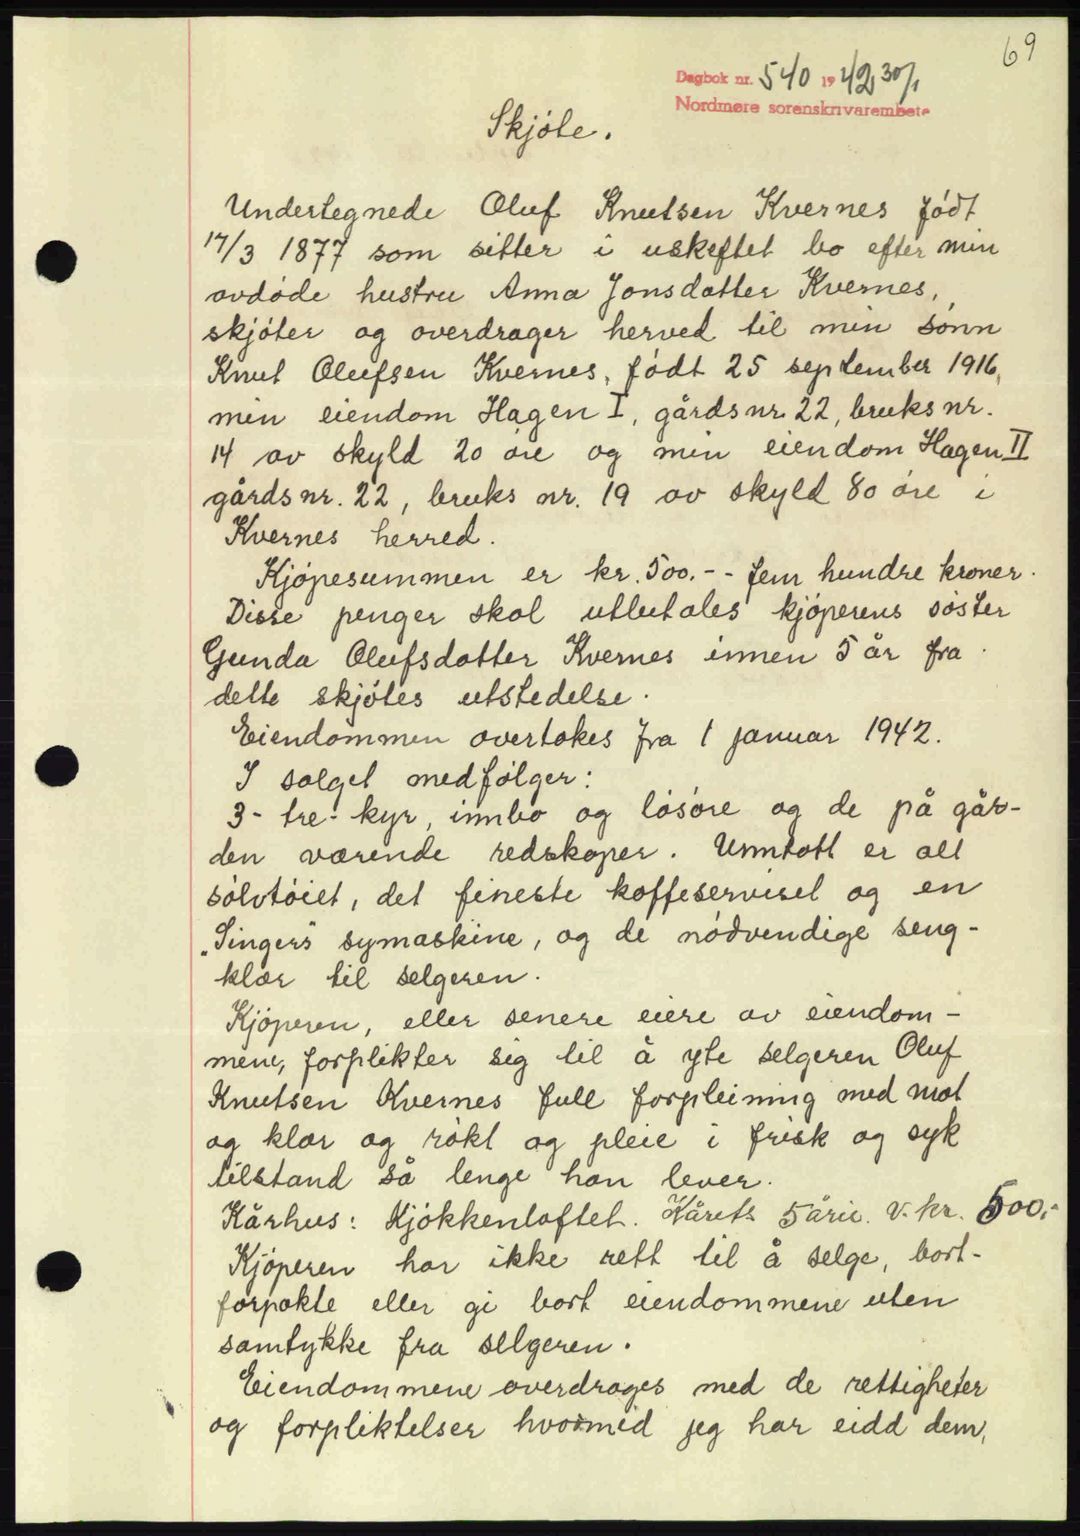 69
Dagbok nr. 540 1942 30/1
Nordmøre sorenskrivarembete
Skjøte.
Undertegnede Oluf Knutsen Kvernes født
17/3 1877 som sitter i uskeftet bo efter min
avdøde hustru Anna Jonsdatter Kvernes,
skjøter og overdrager herved til min sønn
Knut Olufsen Kvernes, født 25 september 1916,
min eiendom Hagen I, gårdsnr. 22, bruksnr.
14 av skyld 20 øre og min eiendom Hagen II
gårdsnr. 22, bruks nr. 19 av skyld 80 øre i
Kvernes herred.
Kjøpesummen er kr. 500.-- fem hundre kroner.
Disse penger skal utbetales kjøperens søster
Gunda Olufsdatter Kvernes innen 5 år fra
dette skjøtes utstedelse.
Eiendommen overtakes fra 1 januar 1942.
I salget medfølger:
3- tre- kyr, innbo og løsøre og de på går-
den værende redskaper. Unntatt er alt
sølvtøiet, det fineste kaffeserviset og en
„Singers" symaskine, og de nødvendige seng-
klær til selgeren.
Kjøperen, eller senere eiere av eiendom-
mene, forplikter sig til å yte selgeren Oluf
Knutsen Kvernes full forpleining med mat
og klær og røkt og pleie i frisk og syk
tilstand så lenge han lever.
Kårhus: Kjøkkenloftet. Kårets 5 årlé. v. kr. 500,-
Kjøperen har ikke rett til å selge, bort-
forpakte eller gi bort eiendommene uten
samtykke fra selgeren.
Eiendommene overdrages med de rettigheter
og forpliktelser hvormed jeg har eidd dem,